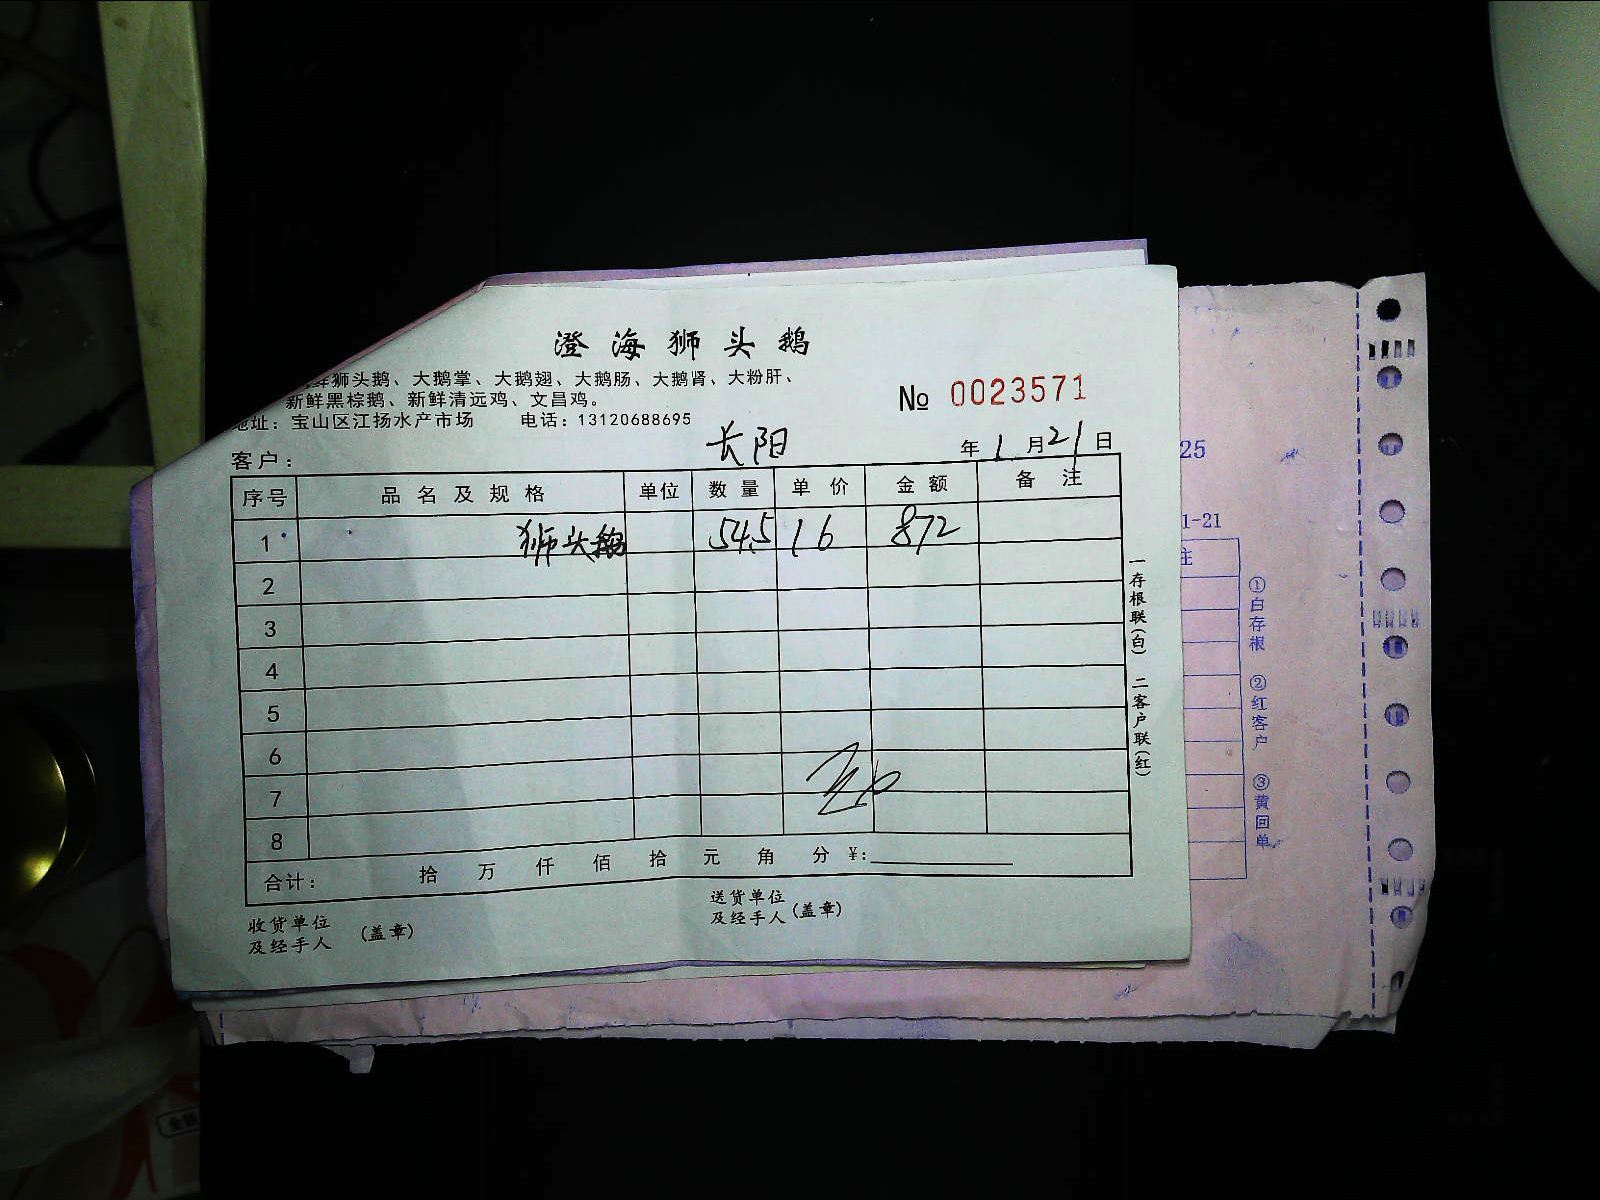 澄海狮头鹅
鲜狮头鹅、大鹅掌、大鹅翅、大鹅肠、大鹅肾、大粉肝、
新鲜黑棕鹅、新鲜清远鸡、文昌鸡。
地址：宝山区江扬水产市场 电话：13120688695
№ 0023571
客户： 长阳 年 1 月 21 日
序号 品名及规格 单位 数量 单价 金额 备注
1 狮头鹅 54.5 16 872
2
3
4
5
6
7
8
合计： 拾 万 仟 佰 拾 元 角 分 ¥:
收货单位
及经手人 (盖章)
送货单位
及经手人 (盖章)
一存根联(白) 二客户联(红)
25
1-21
注
①白存根 ②红客户 ③黄回单